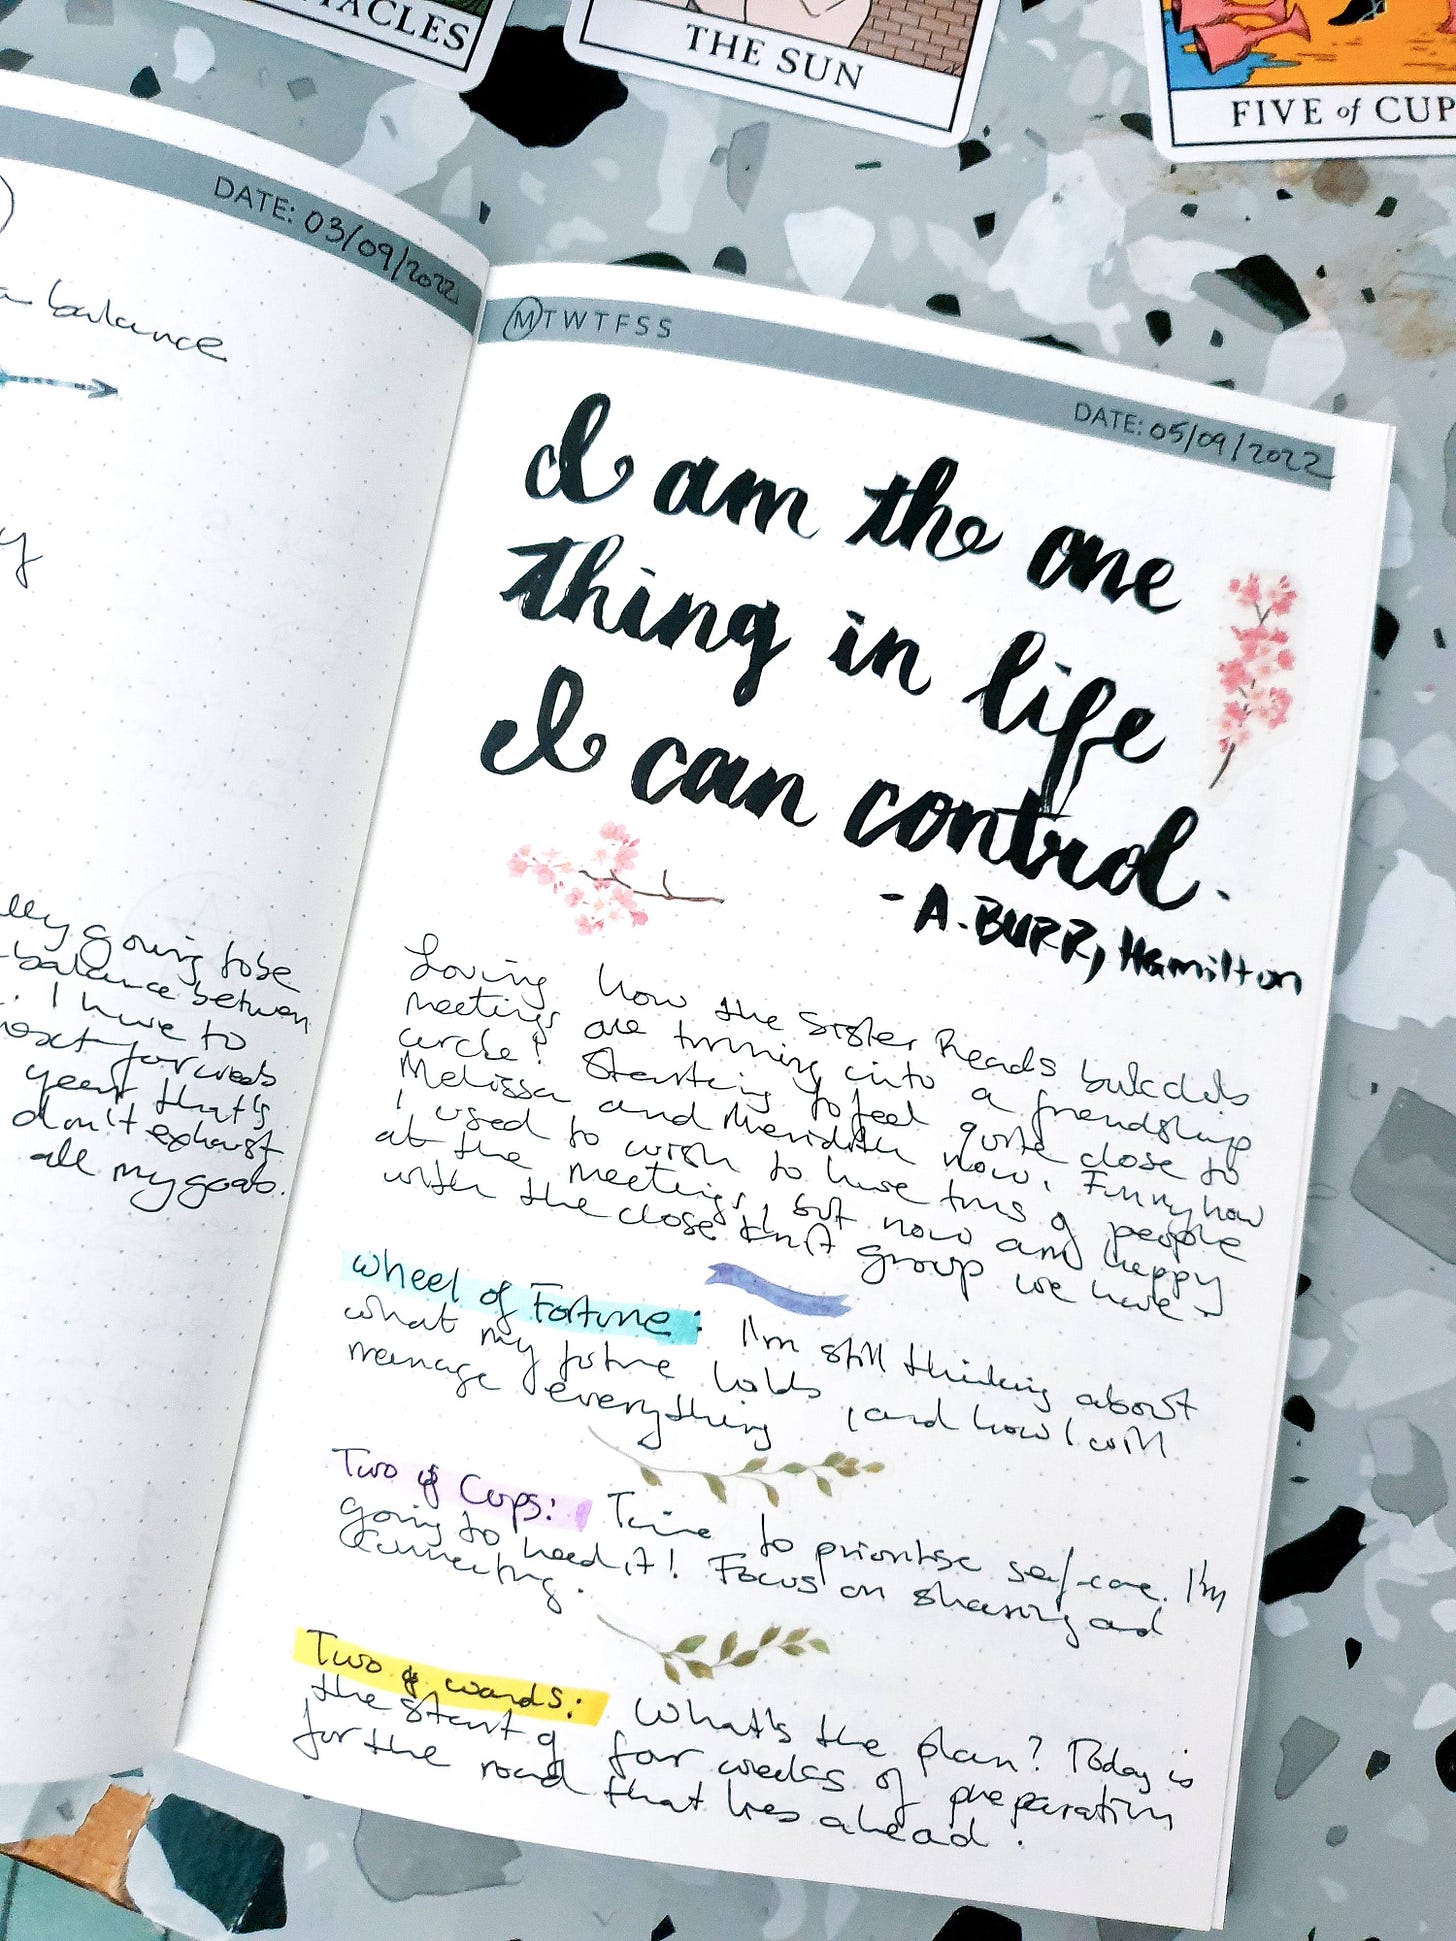 TACLES
THE SUN
FIVE of CUP
DATE: 03/09/2022
a balance
y
lly going to be
balance between
. I have to
next four weeks
year that's
don't exhaust
all my goals.
MTWTFSS
DATE: 05/09/2022
I am the one
thing in life
I can control.
- A. BURR, Hamilton
Loving how the Sister Reads bukclub
meetings are turning into a friendship
circle! Starting to feel quite close to
Melissa and Meridith now. Funny how
I used to wish to have tons of people
at the meetings, but now am happy
with the close knit group we have.
Wheel of Fortune: I'm still thinking about
what my future holds, and how I will
manage everything
Two of Cups: Time to prioritise self-care. I'm
going to need it! Focus on sharing and
connecting.
Two of wands: What's the plan? Today is
the start of four weeks of preparation
for the road that lies ahead.